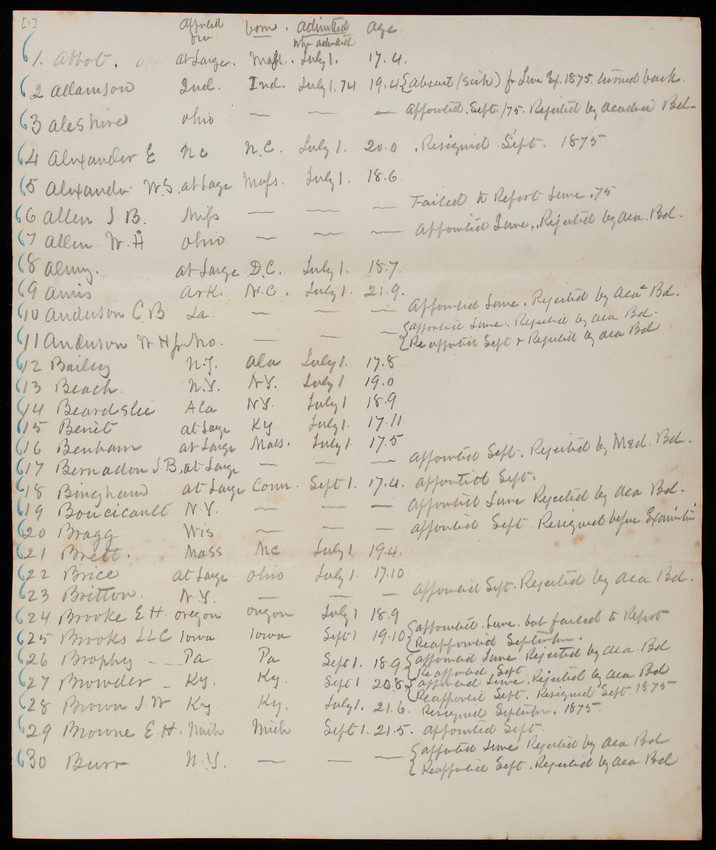 [1] Appointed born. Admitted Age
from When admitted
1. Abbot. at Large. Mass. July 1. 17.4.
2 Adamson Ind. Ind. July 1.74 19.4 { absent (sick) fr June Ex. 1875. turned back.
3 Aleshire Ohio — — — Appointed. Sept./75. Rejected by Academic Bd.
4 Alexander E NC N.C. July 1. 20.0 . Resigned Sept. 1875
5 Alexander W.S. at Large Mass. July 1. 18.6.
6 Allen J B. Miss — — — Failed to Report June .75
7 Allen W. H Ohio — — — Appointed June,. Rejected by Aca. Bd.
8 Almy. at Large D.C. July 1. 18.7.
9 Amis Ark. N.C. July 1. 21.9.
10 Anderson C B La — — — Appointed June. Rejected by Aca Bd.
11 Anderson W H Jr Mo. — — — { appointed June. Rejected by Aca Bd.
{ Re appointed Sept & Rejected by Aca Bd
12 Bailey N.J. Ala July 1. 17.8
13 Beach N.Y. N.Y. July 1 19.0
14 Beardslee Ala N.Y. July 1 18.9
15 Benét at Large Ky July 1. 17.11
16 Benham at Large Mass. July 1. 17.5
17 Bernadou J.B. at Large — — — Appointed Sept. Rejected by Med. Bd.
18 Bingham at Large Conn. Sept 1. 17.4. Appointed Sept.
19 Boucicault N.Y. — — — Appointed June Rejected by Aca Bd.
20 Bragg Wis — — — Appointed Sept Resigned before Examin'tn
21 Brett. Mass NC July 1 19.4.
22 Brice at Large Ohio July 1. 17.10
23 Britton N.Y. — — — Appointed Sept. Rejected by Aca Bd.
24 Brooke E H. Oregon Oregon July 1 18.9
25 Brooks LLC Iowa Iowa Sept 1 19.10 { appointed June. but failed to Report
{ Reappointed September.
26 Brophy — Pa Pa Sept 1. 18.9 { appointed June Rejected by Aca Bd
{ Reappointed Sept
27 Browder — Ky. Ky. Sept 1 20.8 { appointed June. Rejected by Aca Bd
{ Reappointed Sept. Resigned Sept. 1875
28 Brown J.W Ky Ky. July 1. 21.6. Resigned September. 1875.
29 Browne E.H. Mich Mich Sept 1. 21.5. Appointed Sept.
30 Burr N.Y. — — — { appointed June Rejected by Aca Bd
{ Reappointed Sept. Rejected by Aca Bd